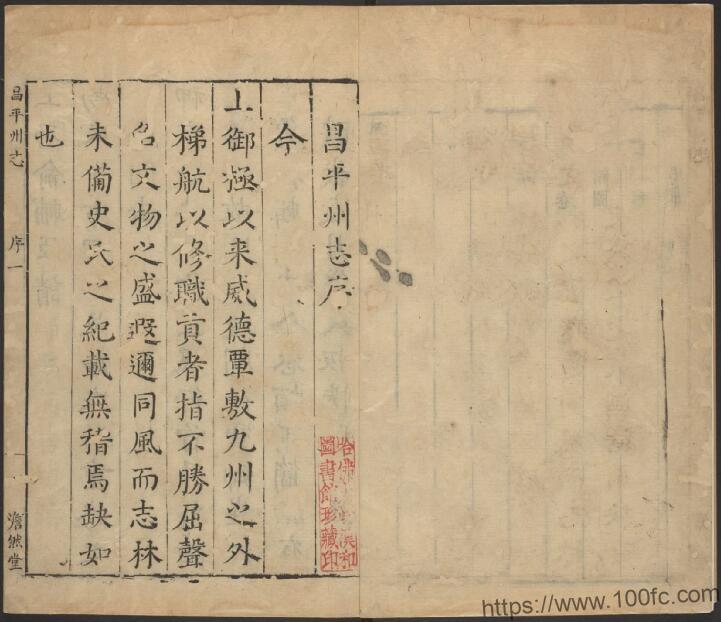 昌平州志序
今
上御極以来威德覃敷九州之外
梯航以修職貢者指不勝屈聲
名文物之盛遐邇同風而志林
未備史氏之紀載無稽焉缺如
也
昌平州志
序一
澹然堂
哈佛大學漢和
圖書館珍藏印
https://www.100fc.com